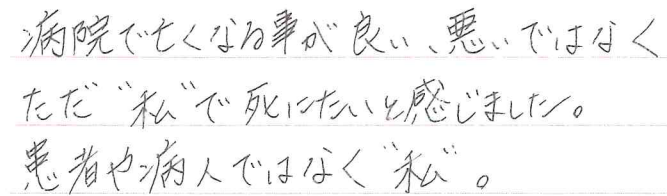 病院で亡くなる事が良い、悪いではなく
ただ"私"で死にたいと感じました。
患者や病人ではなく"私"。